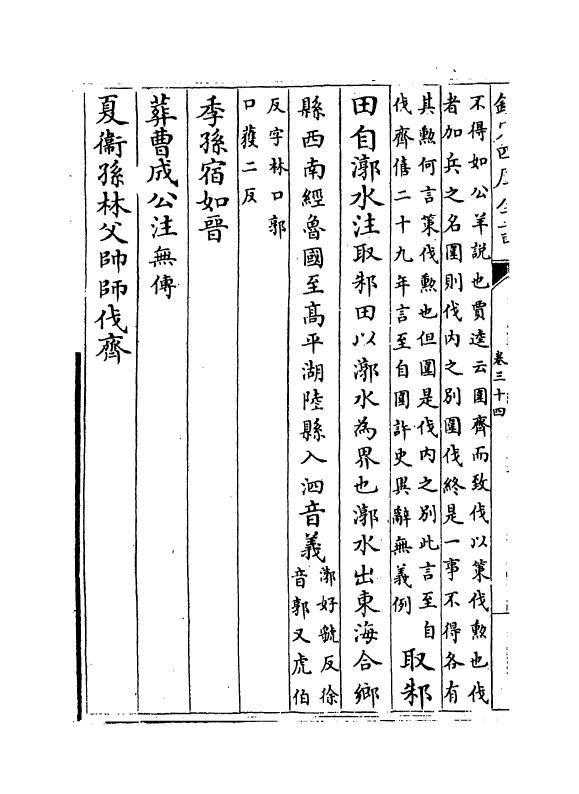 欽定四庫全書
卷三十四
不得如公羊說也賈逵云圍齊而致伐以策伐勲也伐
者加兵之名圍則伐内之別圍伐終是一事不得各有
其勲何言策伐勲也但圍是伐内之別此言至自
伐齊僖二十九年言至自圍許史異辭無義例
取邾
田自漷水注取邾田以漷水為界也漷水出東海合鄉
縣西南經魯國至髙平湖陸縣入泗音義
漷好虢反徐
音郭又虎伯
反字林口郭
口獲二反
季孫宿如晉
葬曹成公注無傳
夏衞孫林父帥師伐齊